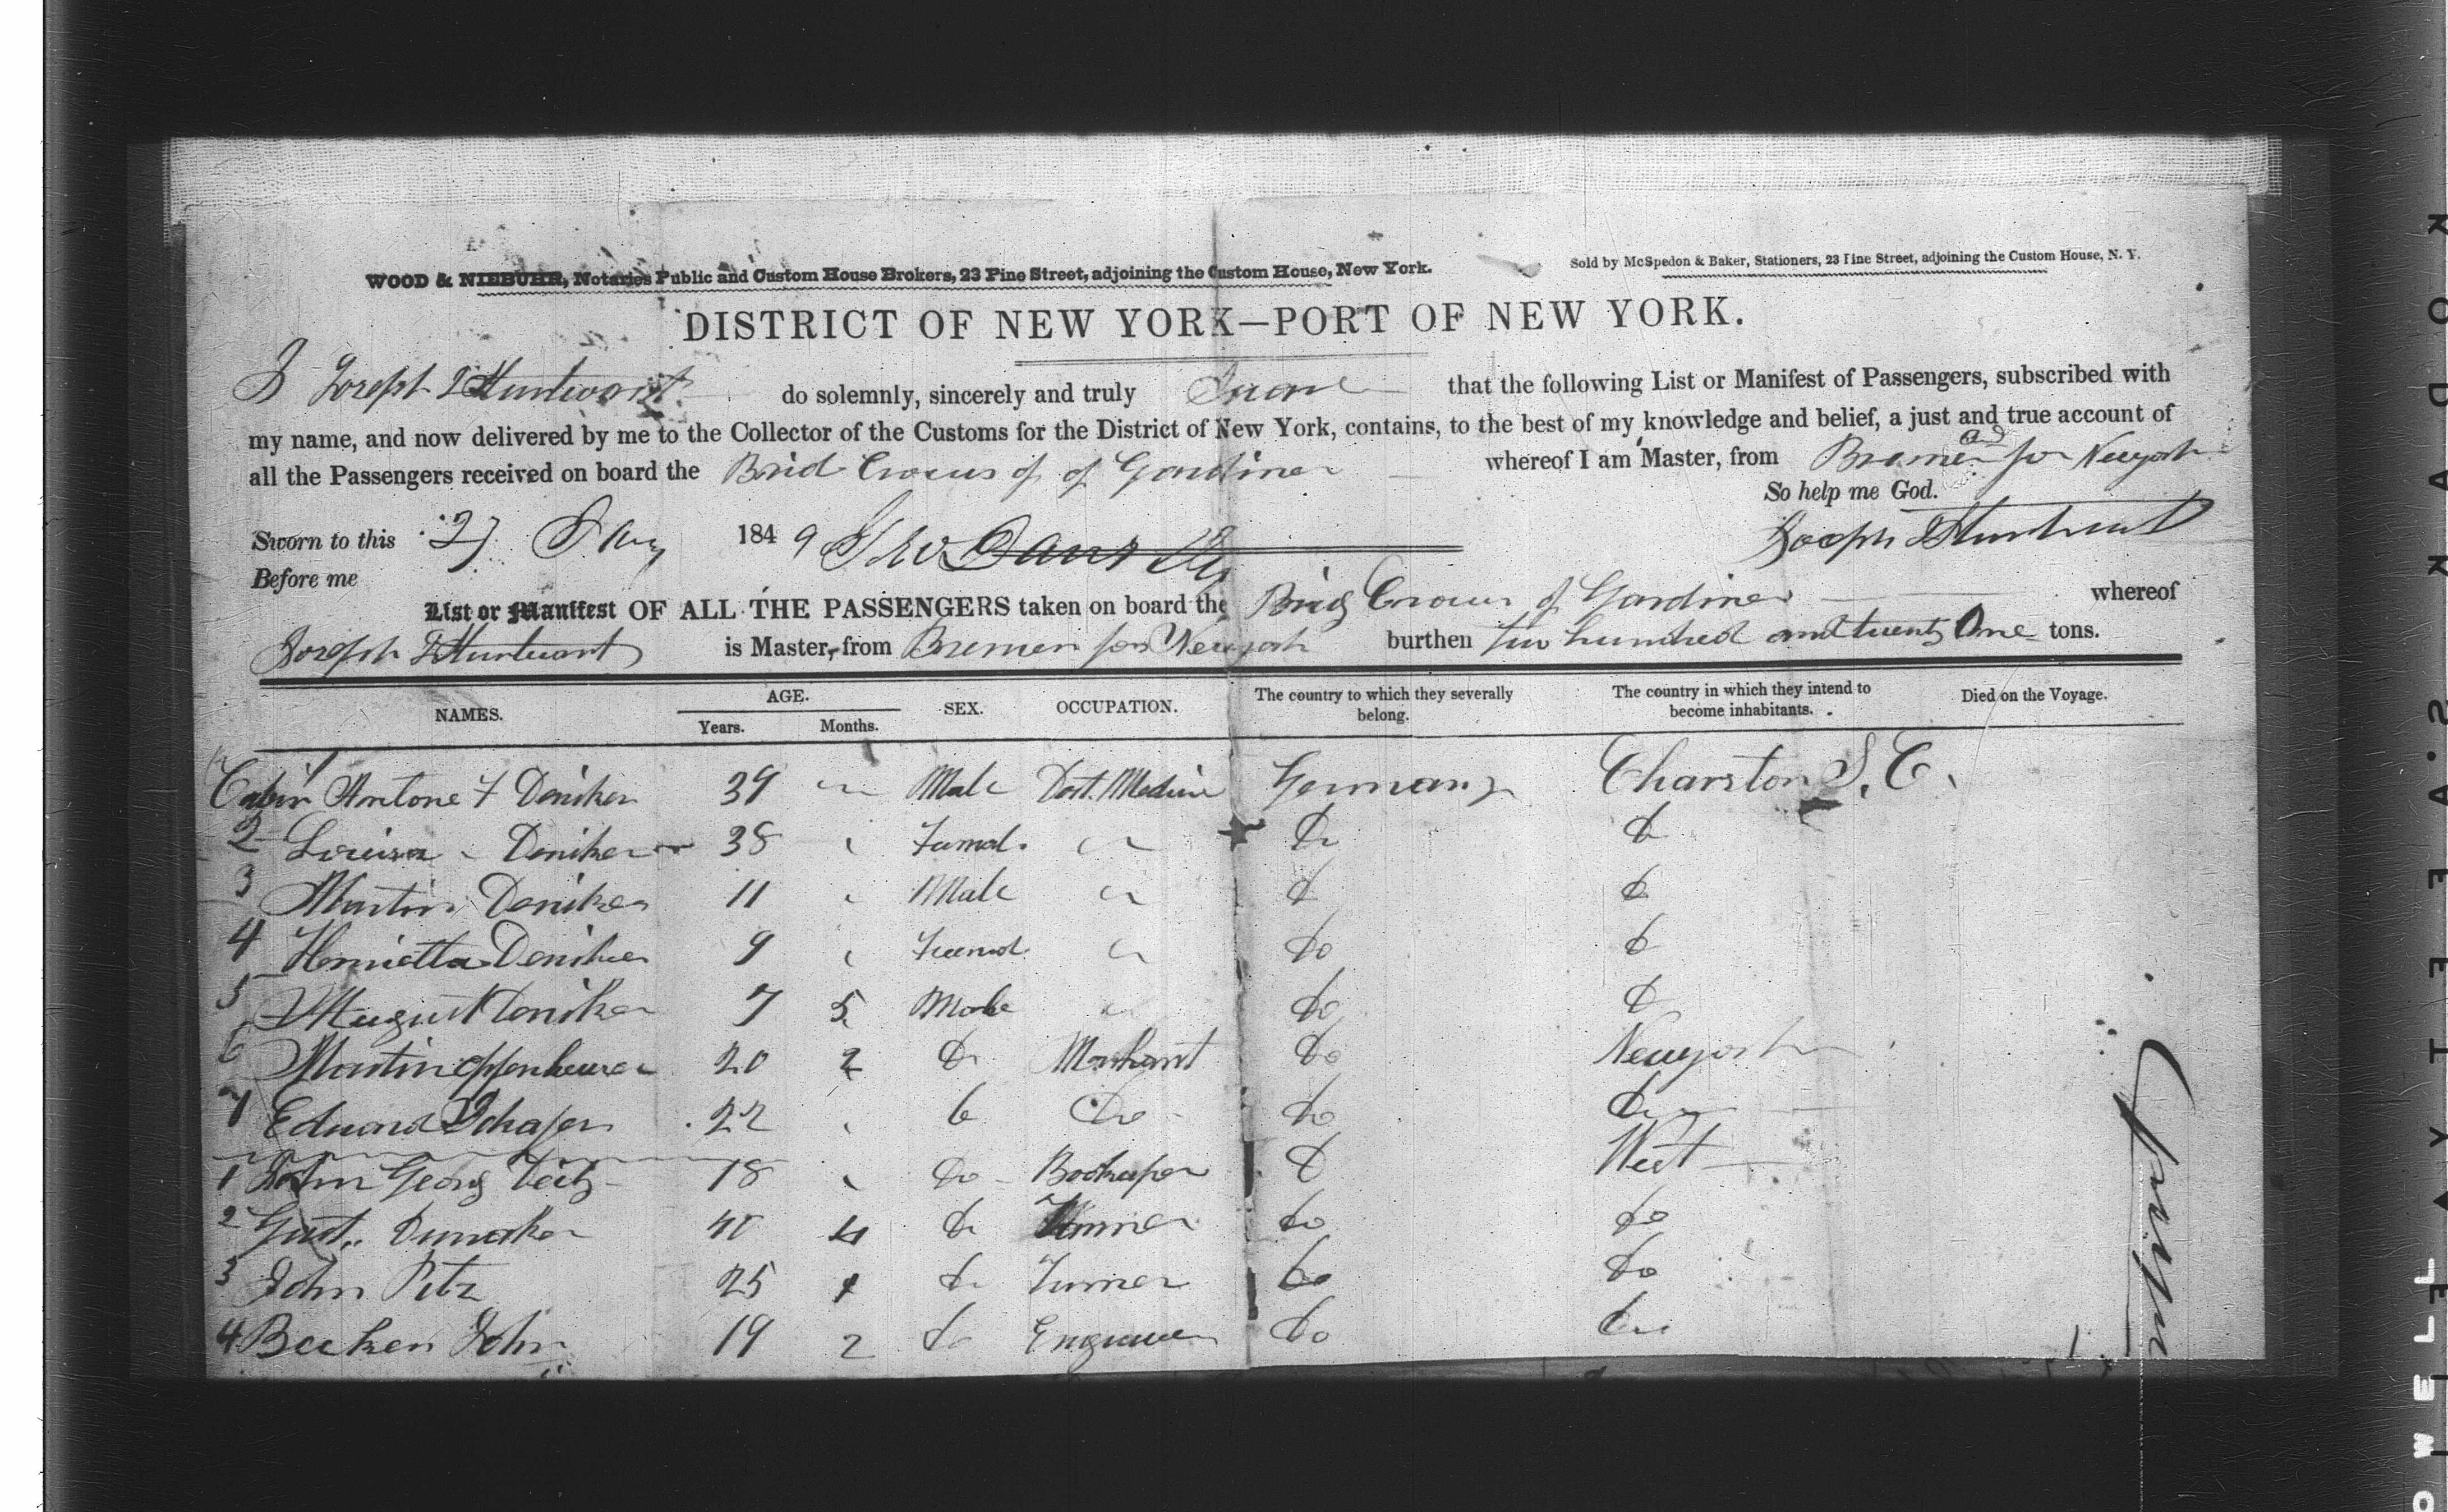 WOOD & NIEBUHR, Notaries Public and Custom House Brokers, 23 Pine Street, adjoining the Custom House, New York.
Sold by McSpedon & Baker, Stationers, 23 Pine Street, adjoining the Custom House, N. Y.
DISTRICT OF NEW YORK—PORT OF NEW YORK.
I Joseph do solemnly, sincerely and truly that the following List or Manifest of Passengers, subscribed with
my name, and now delivered by me to the Collector of the Customs for the District of New York, contains, to the best of my knowledge and belief, a just and true account of
all the Passengers received on board the Crocus of of Gardiner whereof I am Master, from Bremen for Newyork
So help me God.
Sworn to this 27 1849 Joseph
Before me
List or Manifest OF ALL THE PASSENGERS taken on board the Brig Crocus of Gardiner whereof
Joseph is Master, from Bremen for Newyork burthen two hundred and twenty One tons.
NAMES. AGE. SEX. OCCUPATION. The country to which they severally belong. The country in which they intend to become inhabitants. Died on the Voyage.
Years. Months.
Cabin 1 Antone F Deniker 39 Male Doct. Medicin Germany Charston S. C.
2 Louisa Deniker 38 Femal do do
3 Martin Deniker 11 Male do do
4 Henrietta Deniker 9 do do
5 August Deniker 7 5 Male do do
6 Martin 20 2 do Marhant do Newyork
7 Eduard Schafer 22 do do do
1 John Georg 18 do do West
2 Gust. 40 4 do do do
3 John Petz 25 do Turner do do
4 Becker John 19 2 do Engraver do do